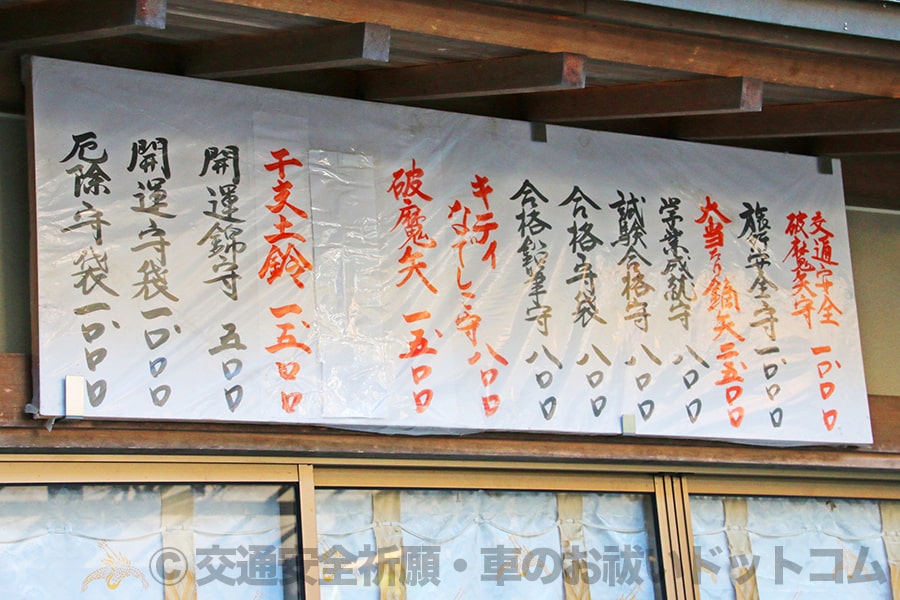 交通安全
破魔矢守 一、〇〇〇
旅行安全守 一、〇〇〇
大当たり鏑矢 二、五〇〇
学業成就守 八〇〇
試験合格守 八〇〇
合格守袋 八〇〇
合格鉛筆守 八〇〇
キティ
なでしこ守 八〇〇
破魔矢 一、五〇〇
干支土鈴 一、五〇〇
開運錦守 五〇〇
開運守袋 一、〇〇〇
厄除守袋 一、〇〇〇
©交通安全祈願・車のお祓いドットコム